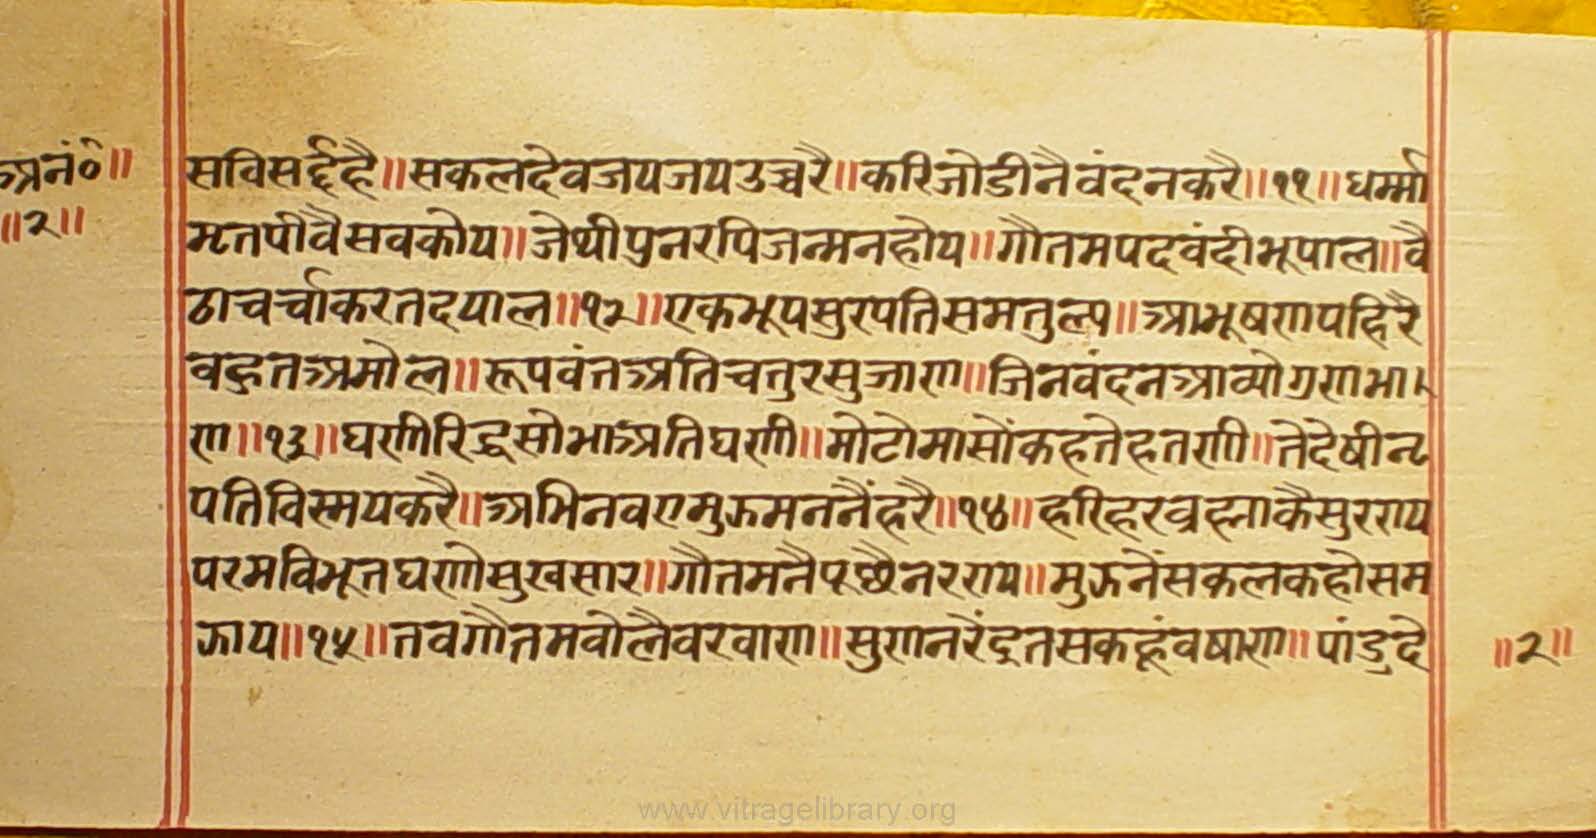 अनं०॥
॥२॥
सविसर्द्दहै॥सकलदेवजयजयउच्चरै॥करिजोडीनैवंदनकरै॥११॥धर्म्मा
मृतपीवैसवकोय॥जेथीपुनरपिजन्मनहोय॥गौतमपदवंदीभूपाल॥वै
ठाचर्चाकरतदयाल॥१२॥एकभूपसुरपतिसमतुल्य॥आभूषणपहिरै
वहुतअमोल॥रूपवंतअतिचतुरसुजाण॥जिनवंदनआव्योगुणभा।
ण॥१३॥घणीरिद्धसोभाअतिघणी॥मोटोमासोंकहतेहतणी॥तेदेषीनृ
पतिविस्मयकरै॥अभिनवएमुझमननैंहरै॥१४॥हरिहरव्रह्माकैसुरराय
परमविभूतघणोसुखसार॥गौतमनैपूछैनरराय॥मुझनेंसकलकहोसम
झाय॥१५॥तवगौतमवोलैवरवाण॥सुणनरेंद्रतसकहूंवषाण॥पांडुदे
॥२॥
www.vitragelibrary.org